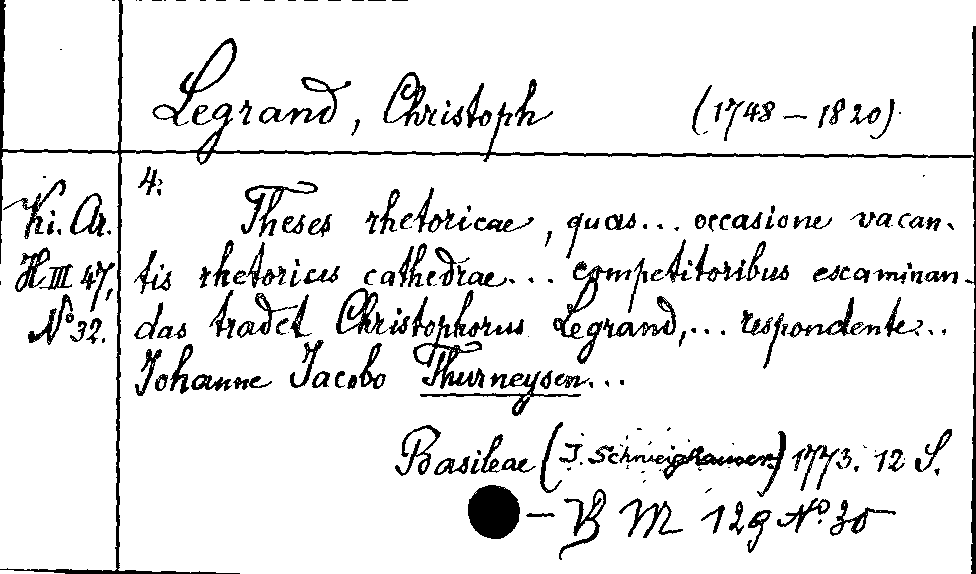 Legrand, Christoph (1748 – 1820).
4.
Ki. Ar.
H. III 47,
No 32.
Theses rhetoricae, quas... occasione vacan-
tis rhetorices cathedrae... competitoribus examinan-
das tradet Christophorus Legrand,... respondente...
Johanne Jacobo Thurneysen...
Basileae (J. Schweighauser) 1773. 12 S.
– B M 129 No. 30